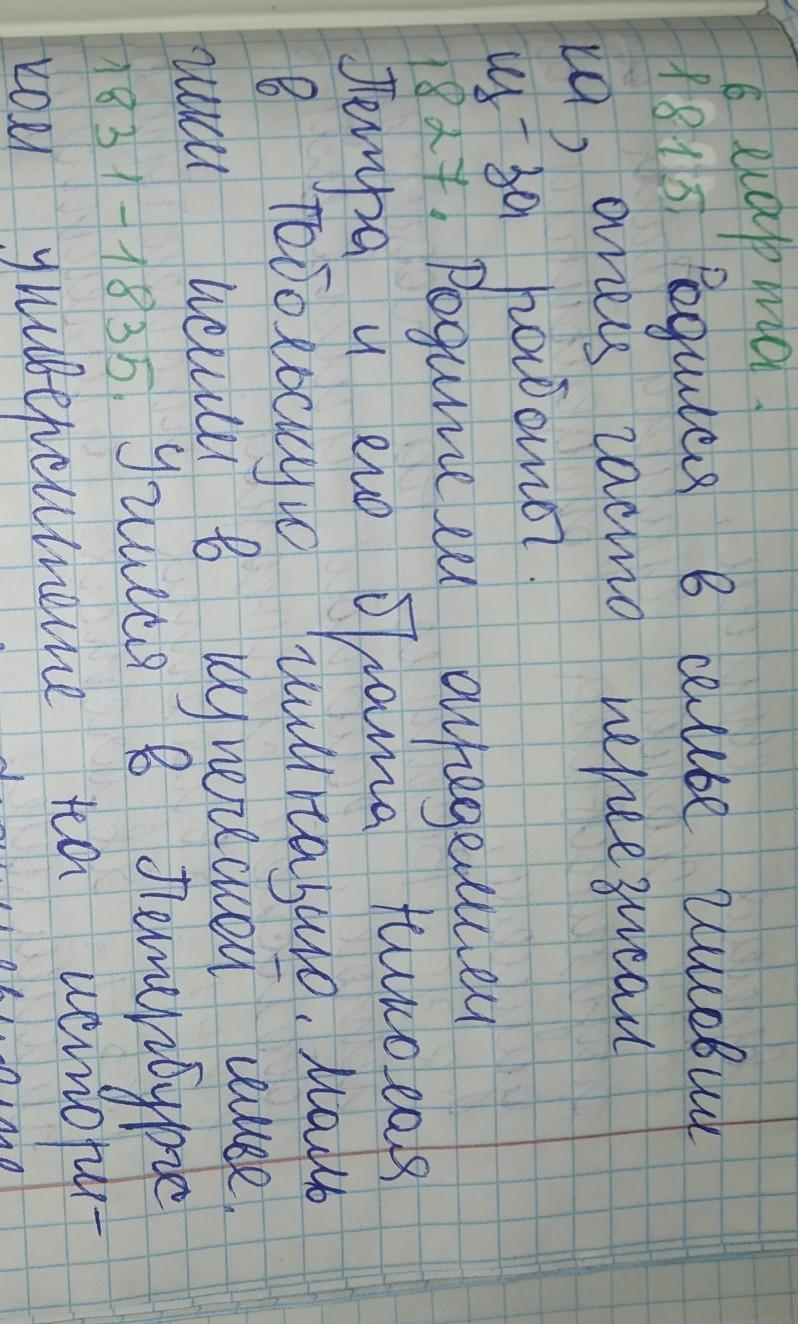 6 марта.
1815. Родился в семье чиновни
ка, отец часто переезжал
из-за работы.
1827. Родители определили
Петра и его брата Николая
в Тобольскую гимназию. Маль
чики жили в купеческой семье.
1831-1835. Учился в Петербургс
ком университете на истори-